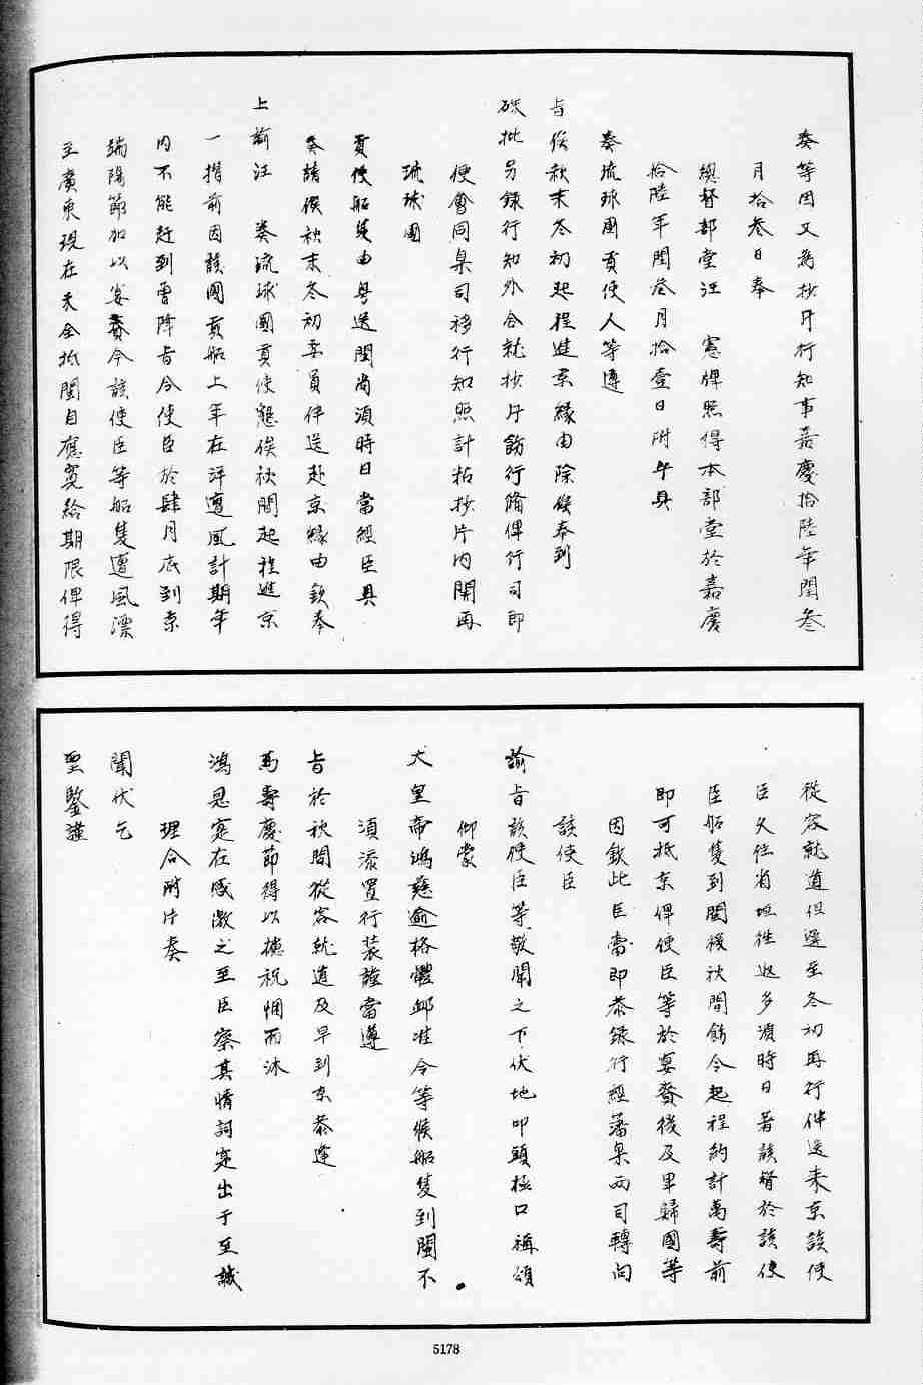 奏等因又為抄片行知事嘉慶拾陸年閏叁
月拾叁日奉
總督部堂汪 憲牌照得本部堂於嘉慶
拾陸年閏叁月拾壹日附片具
奏琉球國貢使人等遵
旨俟秋末冬初起程進京緣由除俟奉到
硃批另錄行知外合就抄片飭行備牌行司即
便會同臬司移行知照計粘抄片內開再
琉球國
貢使船隻由粵送閩尚須時日當經臣具
奏請俟秋末冬初委員伴送赴京緣由欽奉
上諭汪 奏琉球國貢使懇俟秋間起程進京
一摺前因該國貢船上年在洋遭風計期年
內不能趕到曾降旨令使臣於肆月底到京
端陽節加以宴賚今該使臣等船隻遭風漂
至廣東現在尚未全抵閩自應寬給期限俾得
從容就道但遲至冬初再行伴送來京該使
臣久住省垣往返多湏時日著該督於該使
臣船隻到閩後秋間飭令起程約計萬壽前
即可抵京俾使臣等於宴賚後及早歸國等
因欽此臣當即恭錄行經藩臬兩司轉向
該使臣
諭旨該使臣等敬聞之下伏地叩頭極口稱頌
仰蒙
大皇帝鴻慈逾格體邺准令等候船隻到閩不
湏添置行裝謹當遵
旨於秋間從容就道及早到京恭逢
萬壽慶節得以攄祝悃而沐
鴻恩寔在感激之至臣察其情詞寔出于至誠
理合附片奏
聞伏乞
聖鑒謹
5178